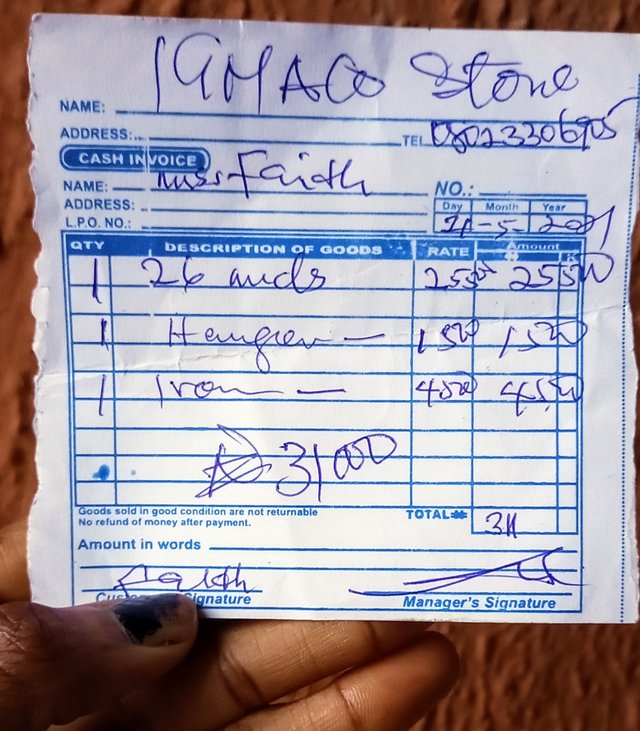 IGMACO Stone
NAME:
ADDRESS:
TEL 08023306905
CASH INVOICE
NAME: miss Faith
NO.:
ADDRESS:
Day Month Year
L.P.O. NO.:
21-5-2021
QTY DESCRIPTION OF GOODS RATE Amount
₦ K
1 26 25500 25500
1 Hanger — 1500 1500
1 Iron — 4500 4500
31000
Goods sold in good condition are not returnable
No refund of money after payment.
TOTAL 31
Amount in words
Faith
Signature
Manager's Signature